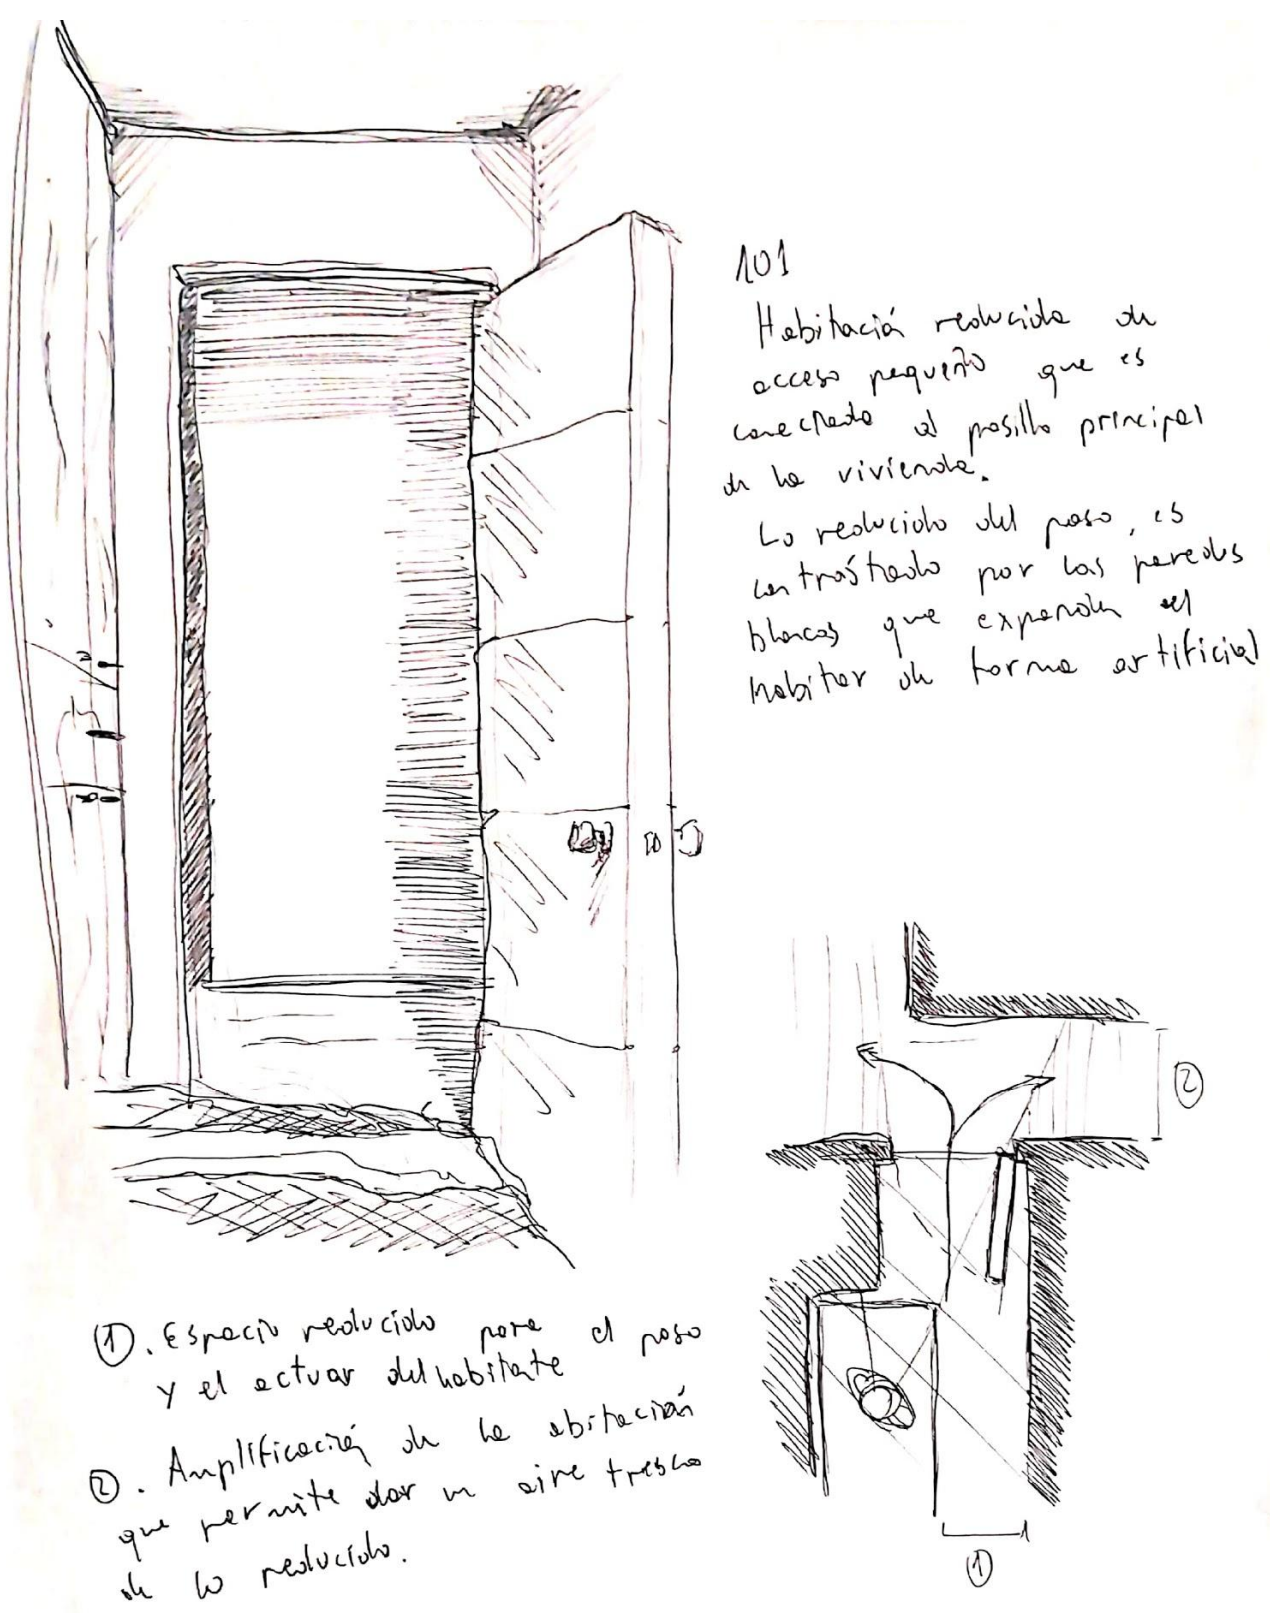 101
Habitación reducida de
acceso pequeño que es
conectada al pasillo principal
de la vivienda.
Lo reducido del paso, es
contrastado por las paredes
blancas que expanden el
habitar de forma artificial
①. Espacio reducido para el paso
y el actuar del habitante
②. Amplificación de la abitación
que permite dar un aire fresco
de lo reducido.
②
①